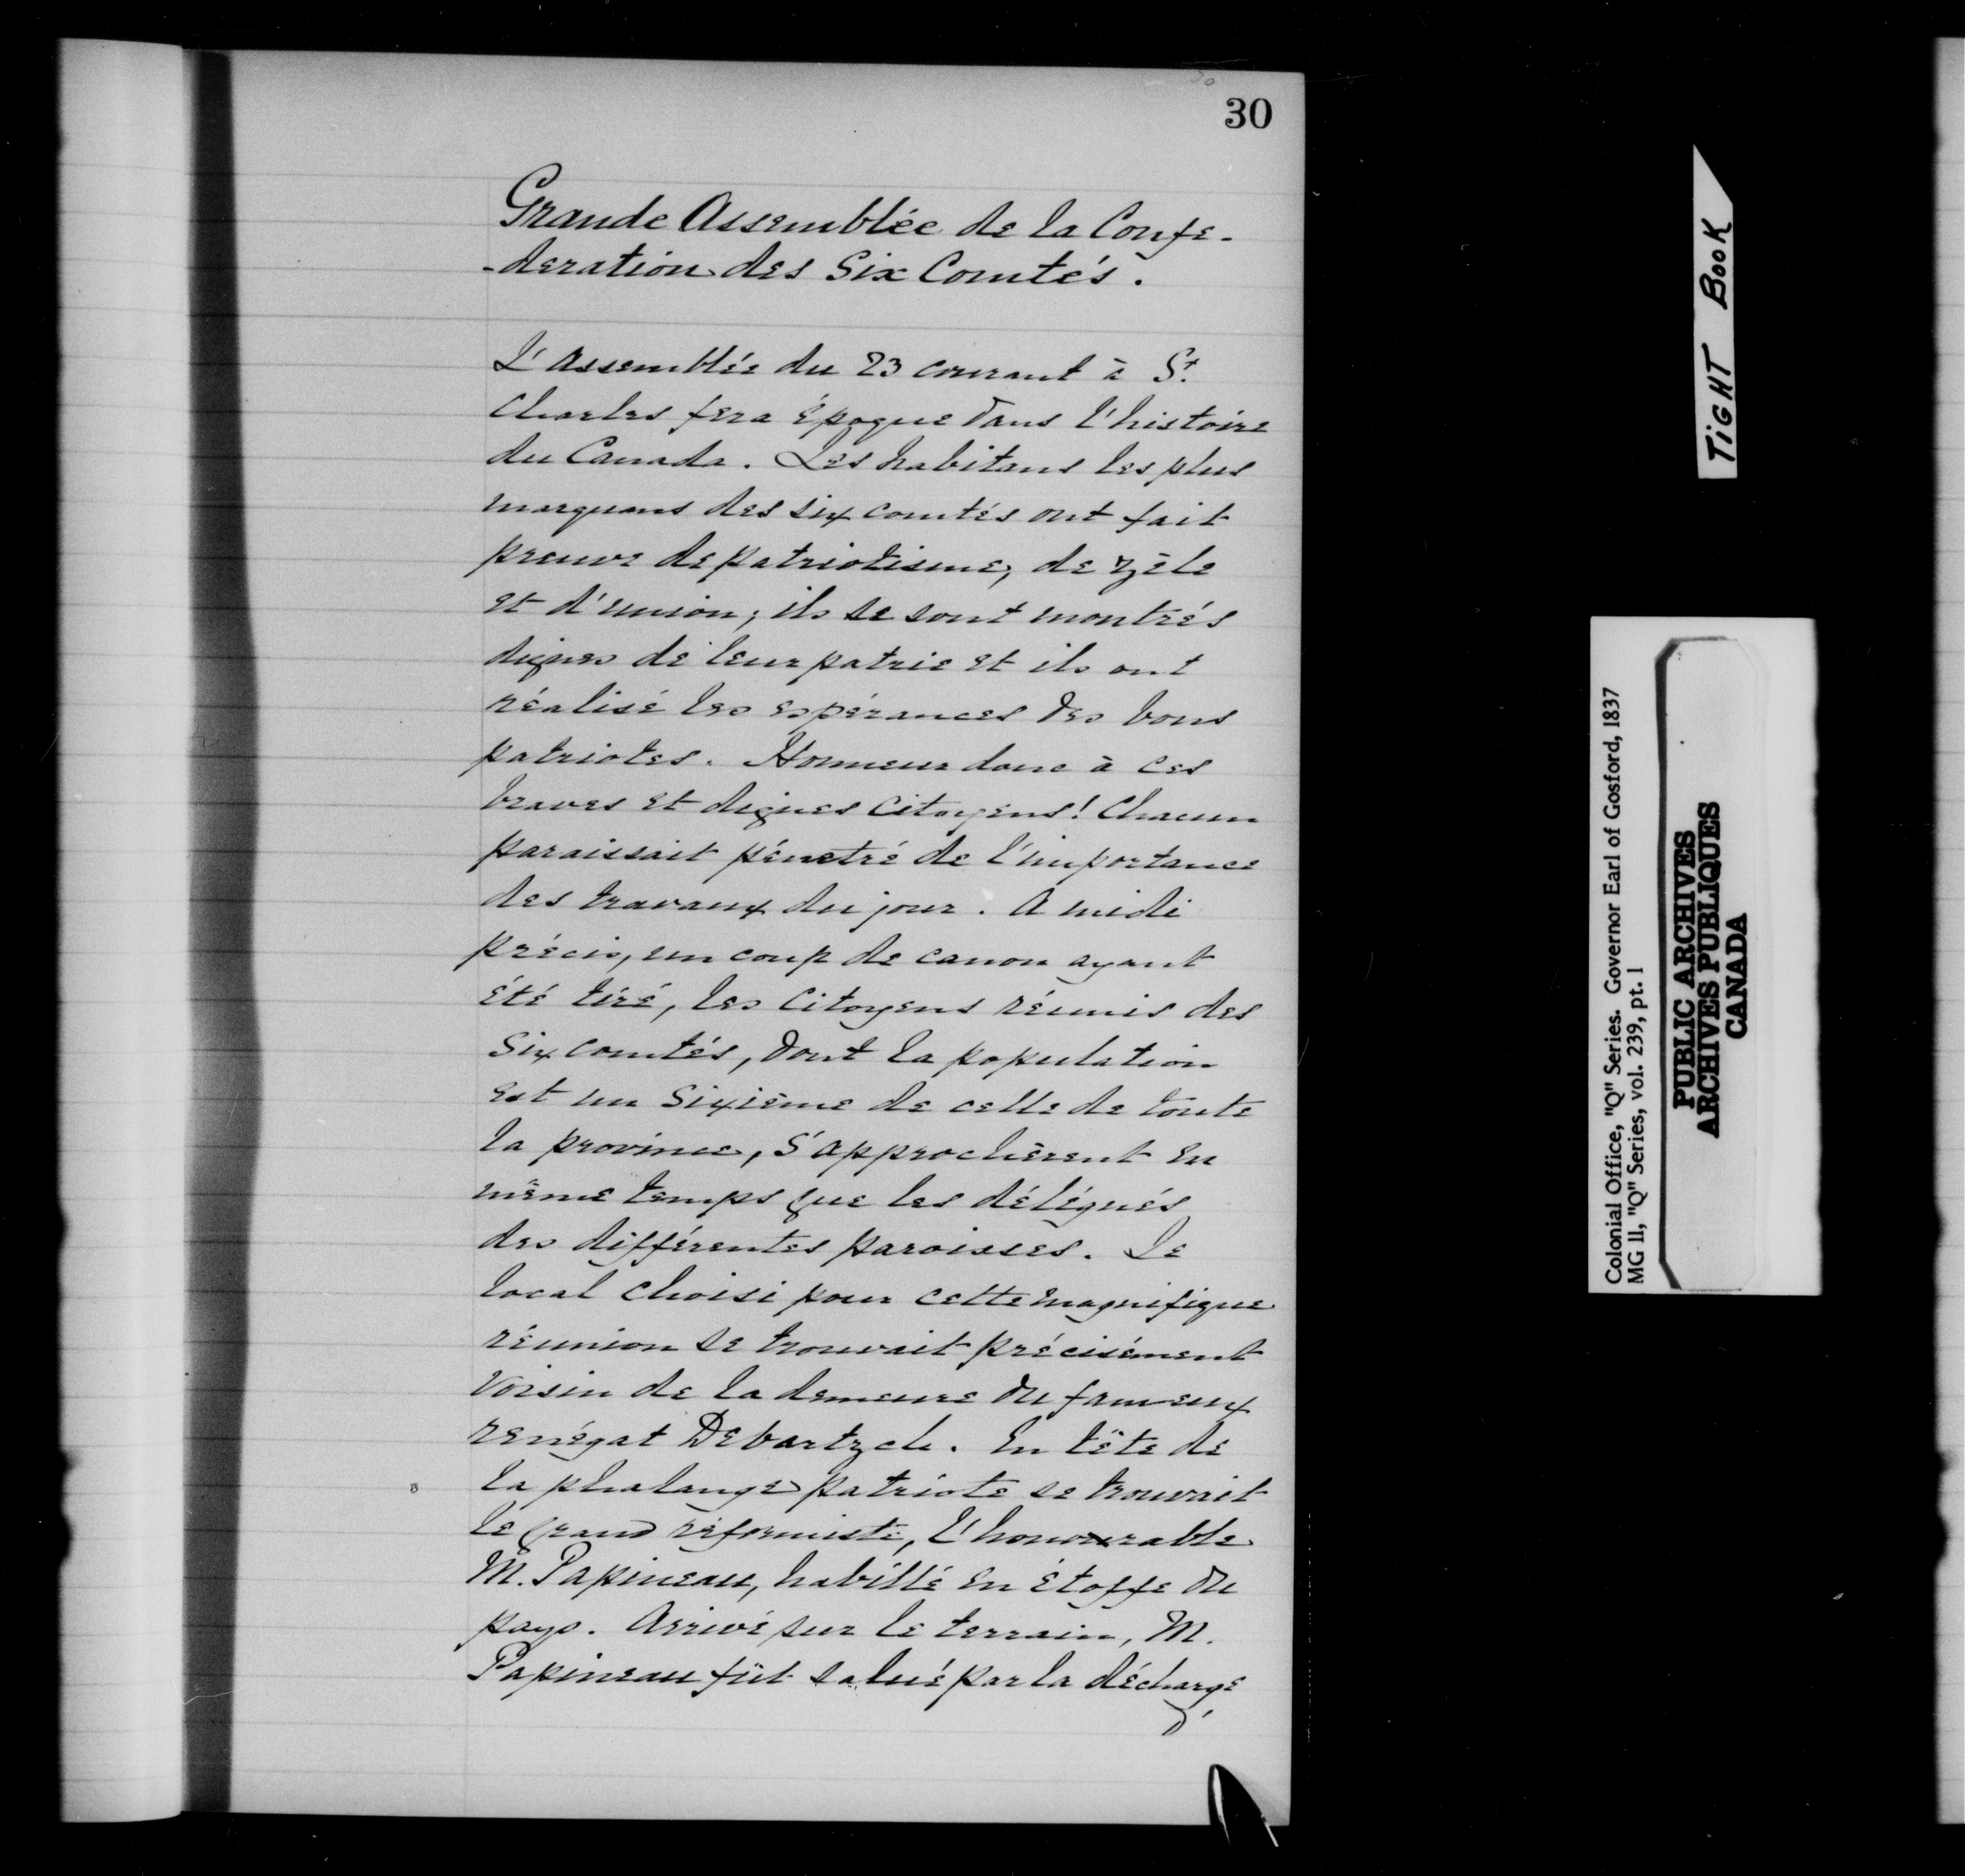 30
30
Grande Assemblée de la Confe-
-deration des Six Comtés.
L'Assemblée du 23 courant à St.
Charles fera époque dans l'histoire
du Canada. Les habitans les plus
marquans des six comtés ont fait
preuve de patriotisme, de zèle
et d'union; ils se sont montrés
dignes de leur patrie et ils ont
réalisé les espérances des bons
patriotes. Honneur donc à ces
braves et dignes Citoyens! Chacun
paraissait pénetré de l'importance
des travaux du jour. A midi
précis, un coup de canon ayant
été tiré, les Citoyens réunis des
Six comtés, dont la population
est un Sixième de celle de toute
la province, S'approchèrent en
même temps que les délégués
des différentes paroisses. Le
local choisi pour cette magnifique
réunion se trouvait précisément
Voisin de la demeure du fameux
renégat Debartzch. En tête de
la phalange patriote se trouvait
le grand réformiste, l'honourable
M. Papineau, habillé en étoffe du
pays. Arrivé sur le terrain, M.
Papineau fût salué par la décharge
d'
TiGHT BooK
Colonial Office, "Q" Series. Governor Earl of Gosford, 1837
MG 11, "Q" Series, vol. 239, pt. 1
PUBLIC ARCHIVES
ARCHIVES PUBLIQUES
CANADA